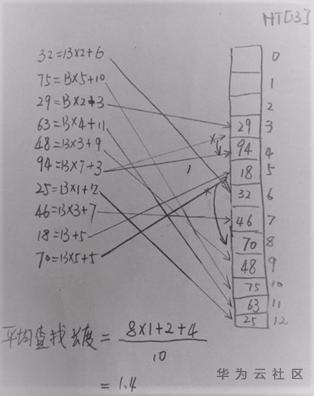 HT[13]
32=13×2+6
75=13×5+10
29=13×2+3
63=13×4+11
48=13×3+9
94=13×7+3
25=13×1+12
46=13×3+7
18=13+5
70=13×5+5
0
1
2
29 3
94 4
18 5
32 6
46 7
70 8
48 9
75 10
63 11
25 12
平均查找长度= 8×1+2+4
10
=1.4
华为云社区